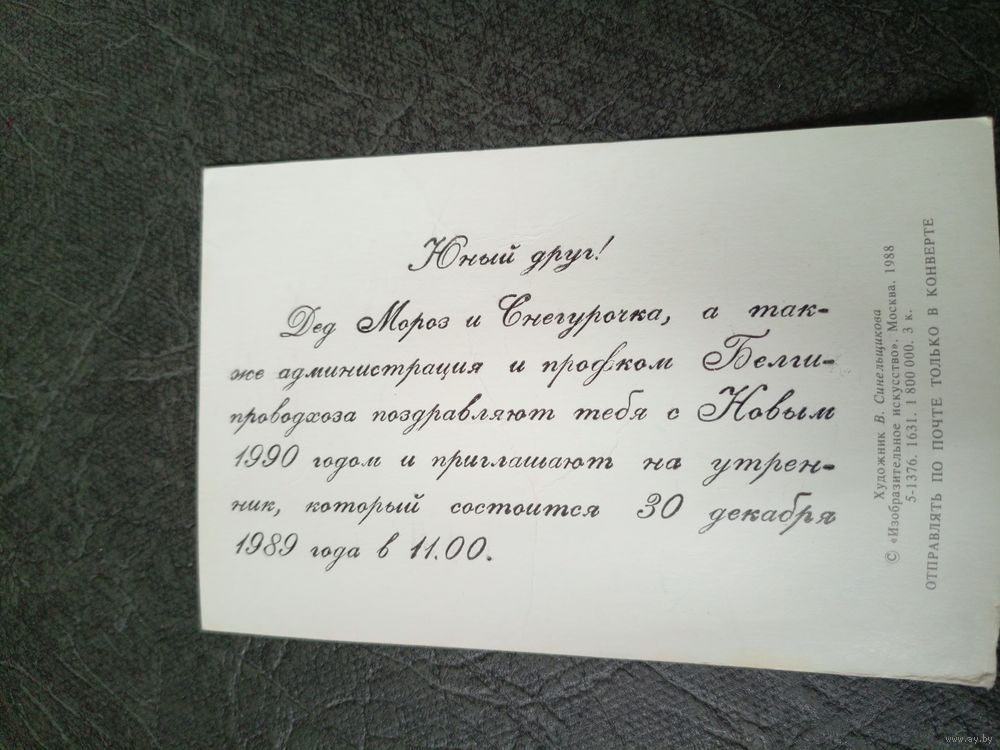 Юный друг!
Дед Мороз и Снегурочка, а так-
же администрация и профком Белги-
проводхоза поздравляют тебя с Новым
1990 годом и приглашают на утрен-
ник, который состоится 30 декабря
1989 года в 11.00.
Художник В. Синельщикова
© «Изобразительное искусство». Москва. 1988
5-1376. 1631. 1 800 000. 3 к.
ОТПРАВЛЯТЬ ПО ПОЧТЕ ТОЛЬКО В КОНВЕРТЕ
www.ay.by